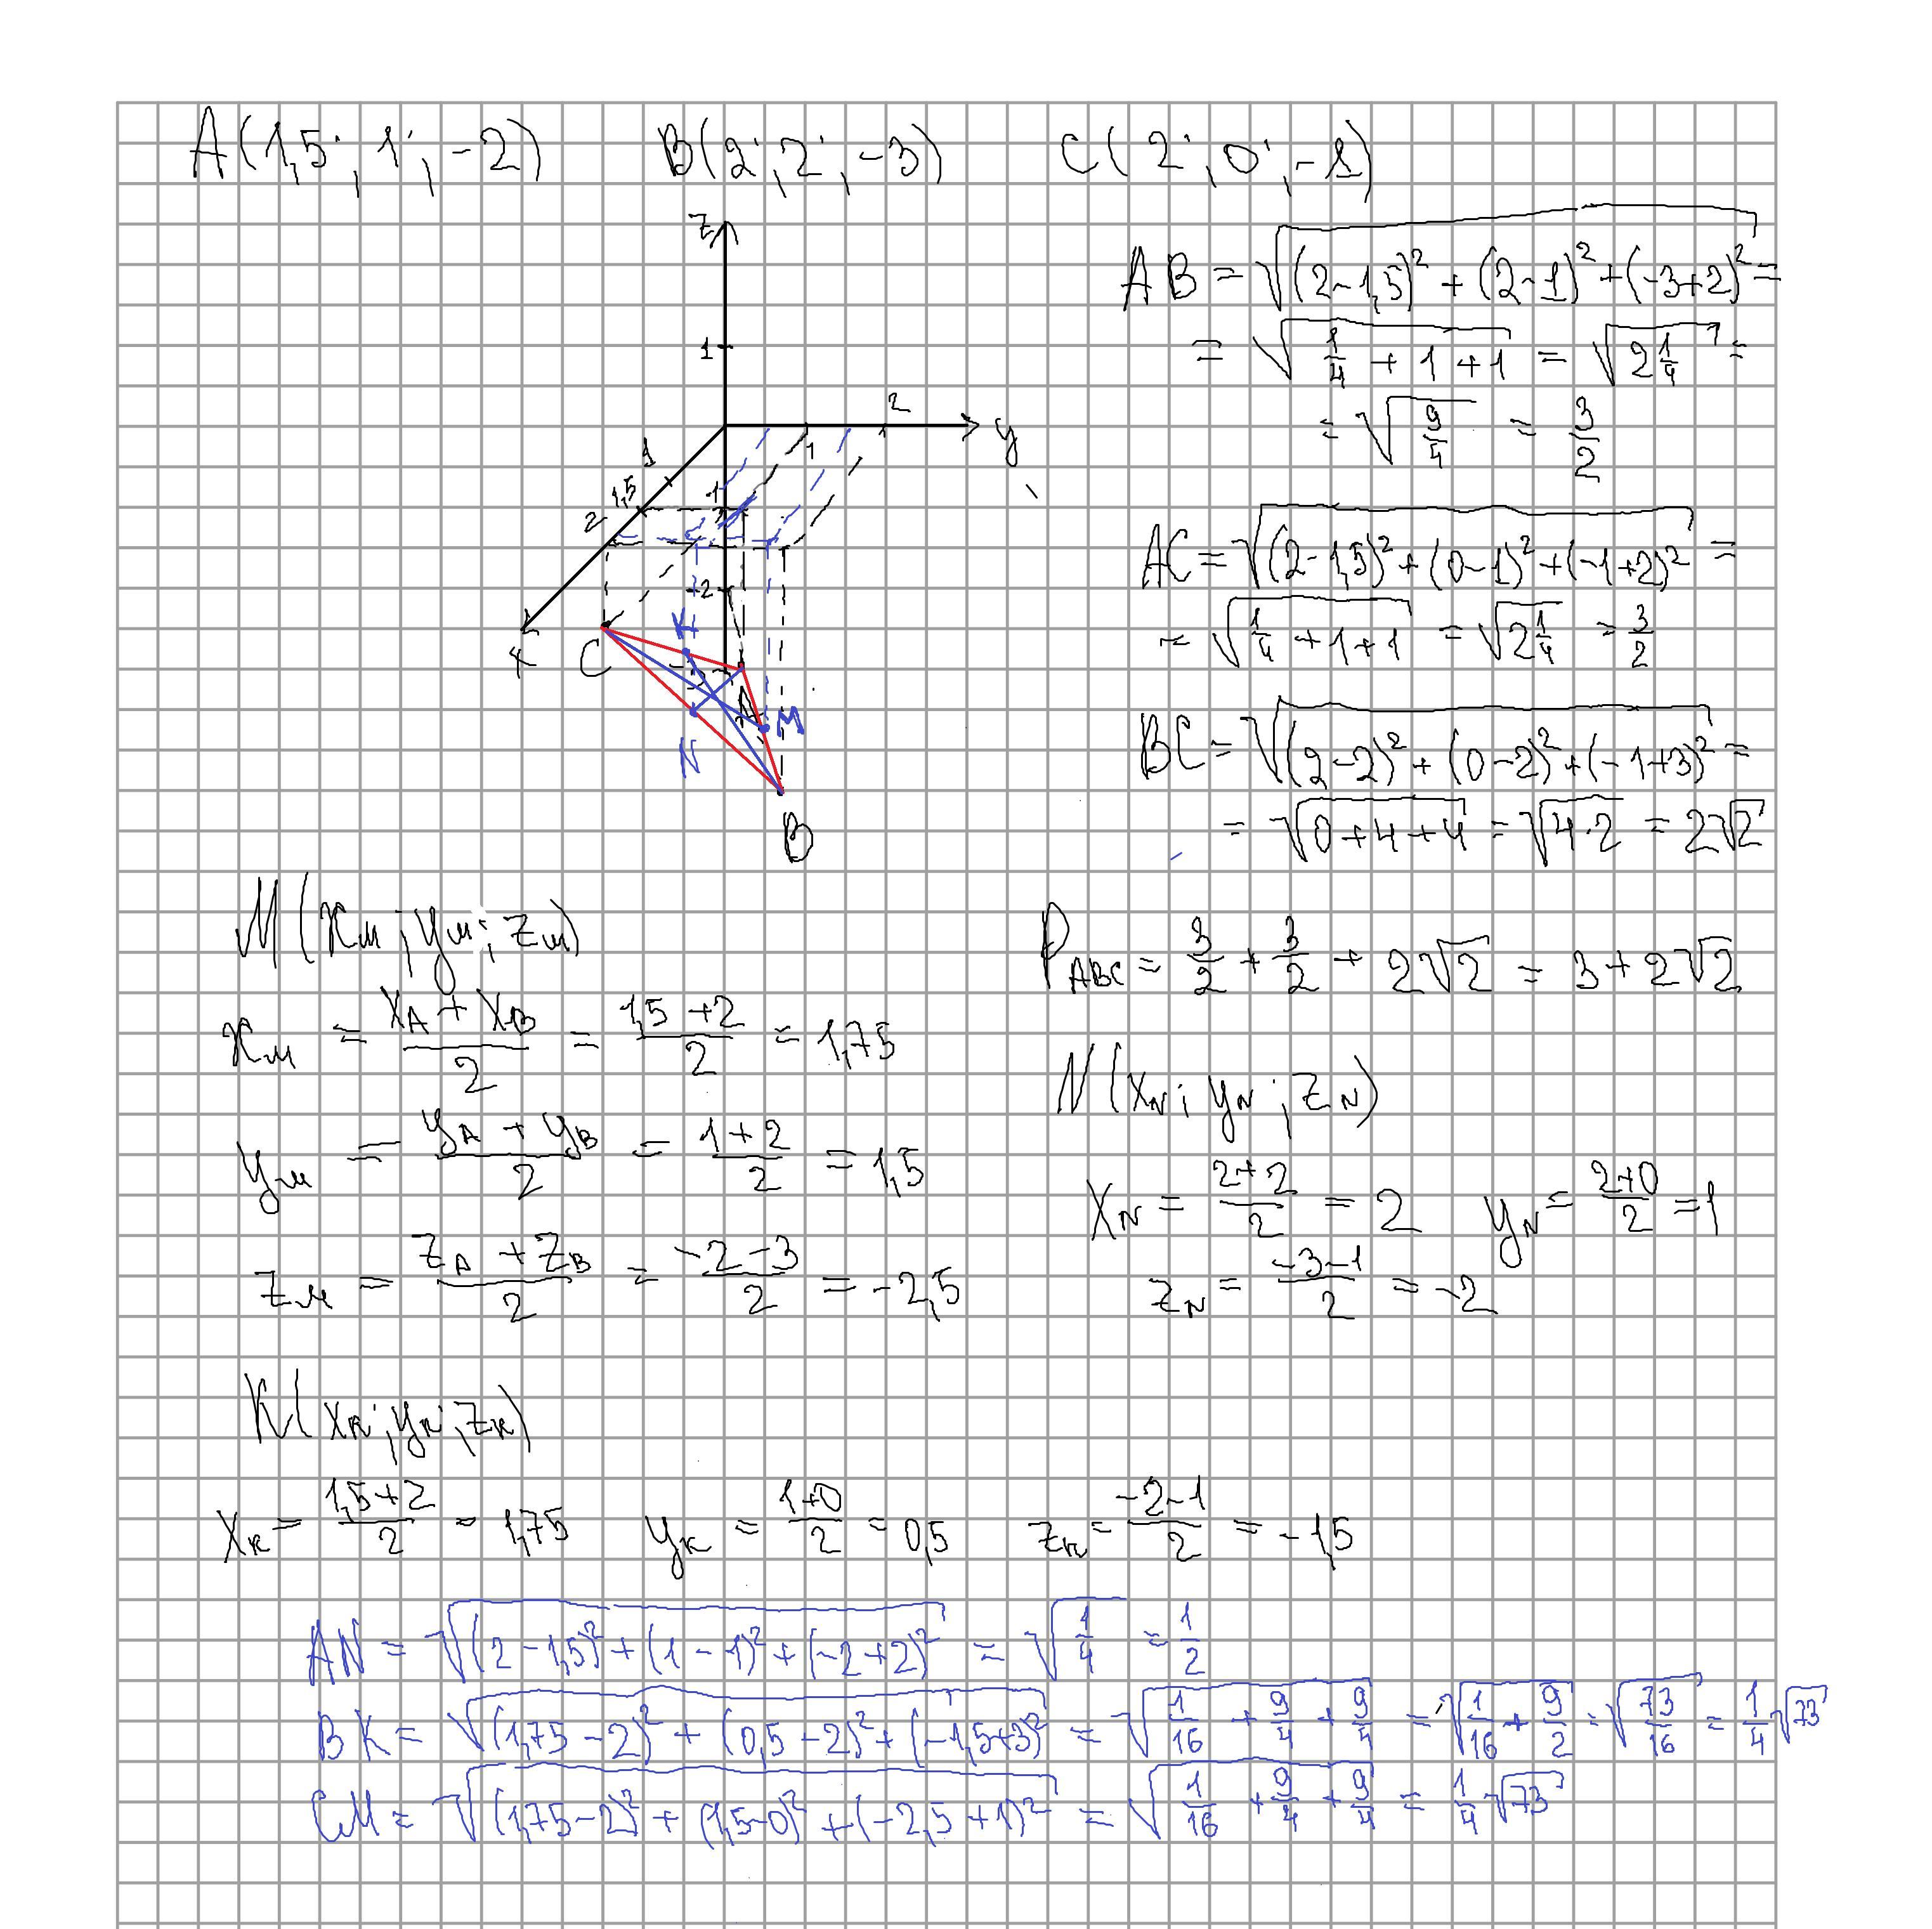 A(1,5; 1; -2) B(2; 2; -3) C(2; 0; -1)
z
1
2
y
1
1
1,5
2
-1
-2
-3
x
C
K
A
M
N
B
AB = √((2-1,5)² + (2-1)² + (-3+2)²) =
= √(1/4 + 1 + 1) = √(2 1/4) =
= √(9/4) = 3/2
AC = √((2-1,5)² + (0-1)² + (-1+2)²) =
= √(1/4 + 1 + 1) = √(2 1/4) = 3/2
BC = √((2-2)² + (0-2)² + (-1+3)²) =
= √(0+4+4) = √(4·2) = 2√2
P_ABC = 3/2 + 3/2 + 2√2 = 3 + 2√2
M(x_M; y_M; z_M)
x_M = (x_A + x_B)/2 = (1,5 + 2)/2 = 1,75
y_M = (y_A + y_B)/2 = (1 + 2)/2 = 1,5
z_M = (z_A + z_B)/2 = (-2-3)/2 = -2,5
N(x_N; y_N; z_N)
x_N = (2+2)/2 = 2 y_N = (2+0)/2 = 1
z_N = (-3-1)/2 = -2
K(x_K; y_K; z_K)
x_K = (1,5+2)/2 = 1,75 y_K = (1+0)/2 = 0,5 z_K = (-2-1)/2 = -1,5
AN = √((2-1,5)² + (1-1)² + (-2+2)²) = √(1/4) = 1/2
BK = √((1,75-2)² + (0,5-2)² + (-1,5+3)²) = √(1/16 + 9/4 + 9/4) = √(1/16 + 9/2) = √(73/16) = 1/4 √73
CM = √((1,75-2)² + (1,5-0)² + (-2,5+1)²) = √(1/16 + 9/4 + 9/4) = 1/4 √73